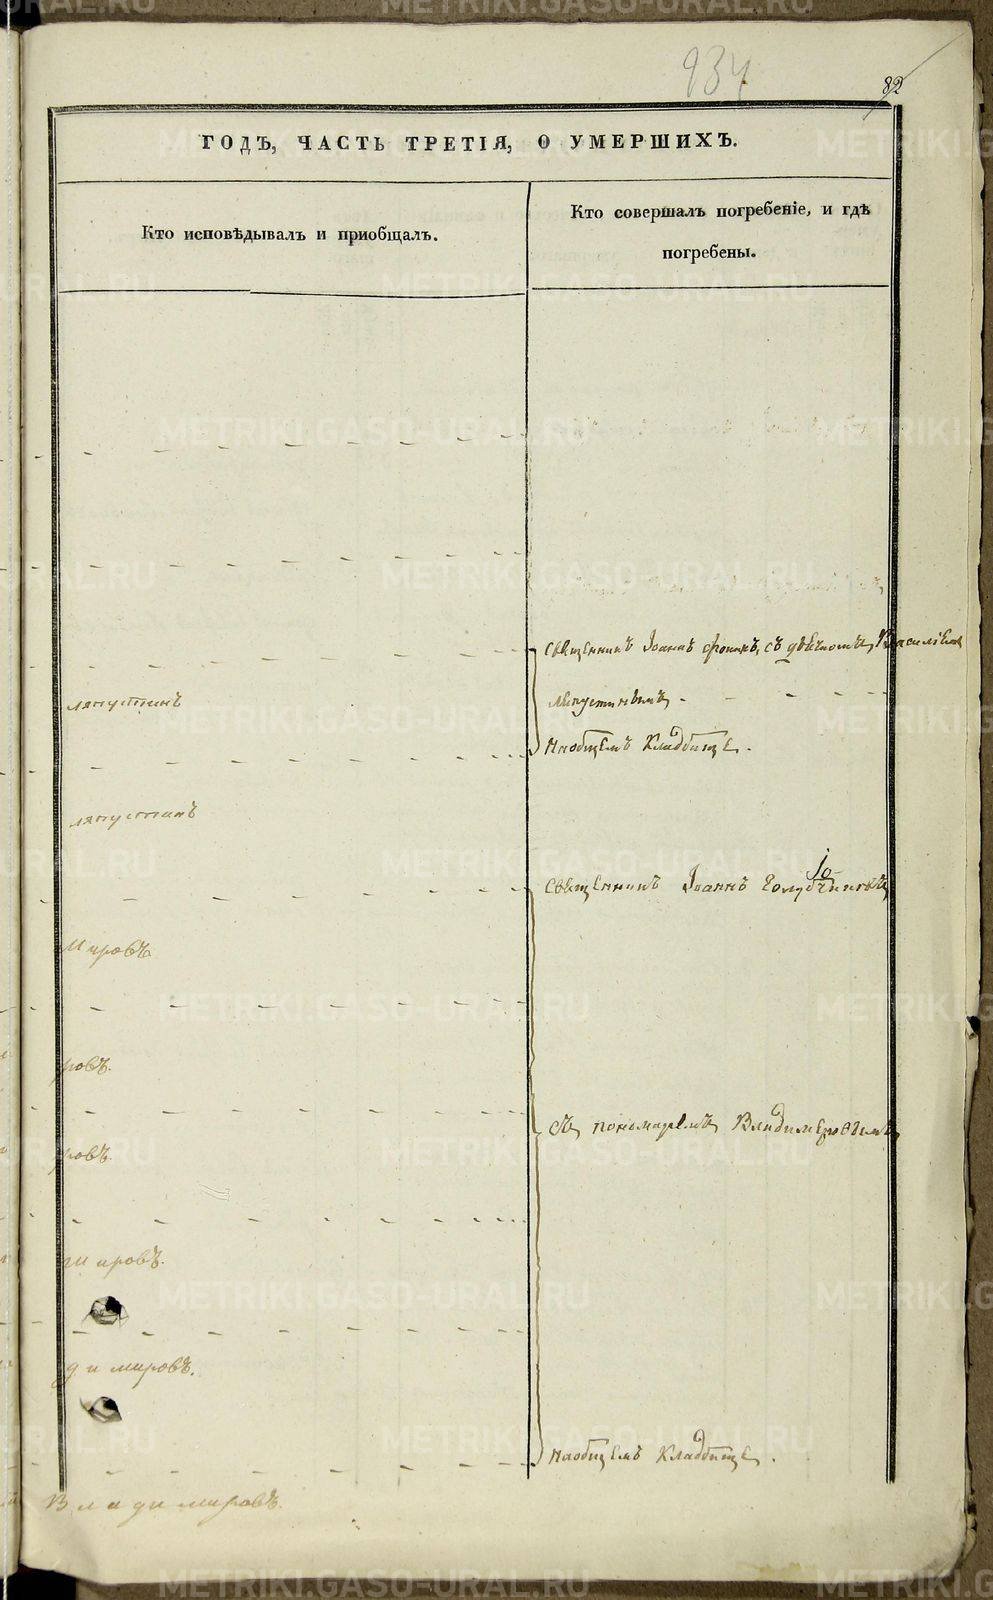 934
82
ГОДЪ, ЧАСТЬ ТРЕТІЯ, О УМЕРШИХЪ.
Кто исповѣдывалъ и пріобщалъ.
Кто совершалъ погребеніе, и гдѣ
погребены.
священникъ Іоаннъ съ дьячкомъ Василіем
ляпустинымъ
ляпустинъ
На общемъ Кладбище.
ляпустинъ
священникъ Іоаннъ голубчиковъ
мировъ
ровъ.
съ пономаремъ Владимеровымъ
ровъ.
мировъ.
димировъ.
На общемъ Кладбище.
Владимировъ.
METRIKI.GASO-URAL.RU